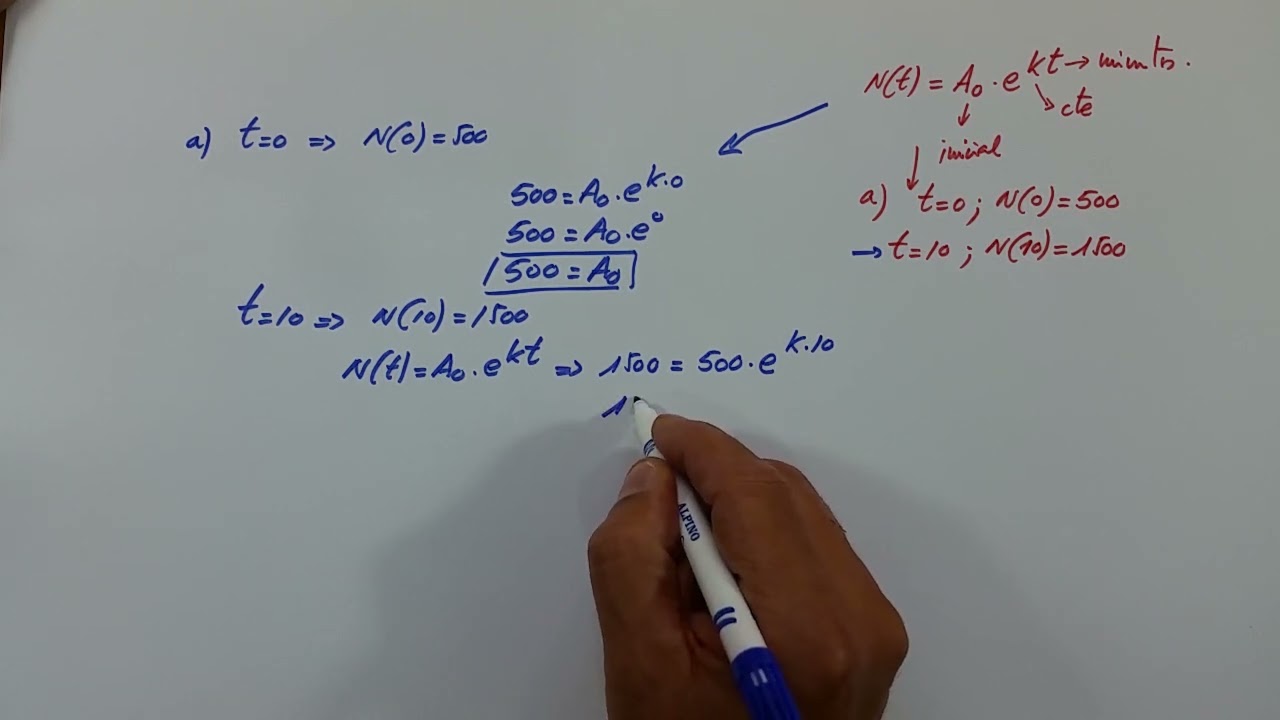 N(t) = A₀ · e^kt → minutos.
cte
inicial
a) t=0 ; N(0) = 500
→ t=10 ; N(10) = 1500
a) t=0 ⇒ N(0) = 500
500 = A₀ · e^k·0
500 = A₀ · e^0
500 = A₀
t=10 ⇒ N(10) = 1500
N(t) = A₀ · e^kt ⇒ 1500 = 500 · e^k·10
1
ALPINO